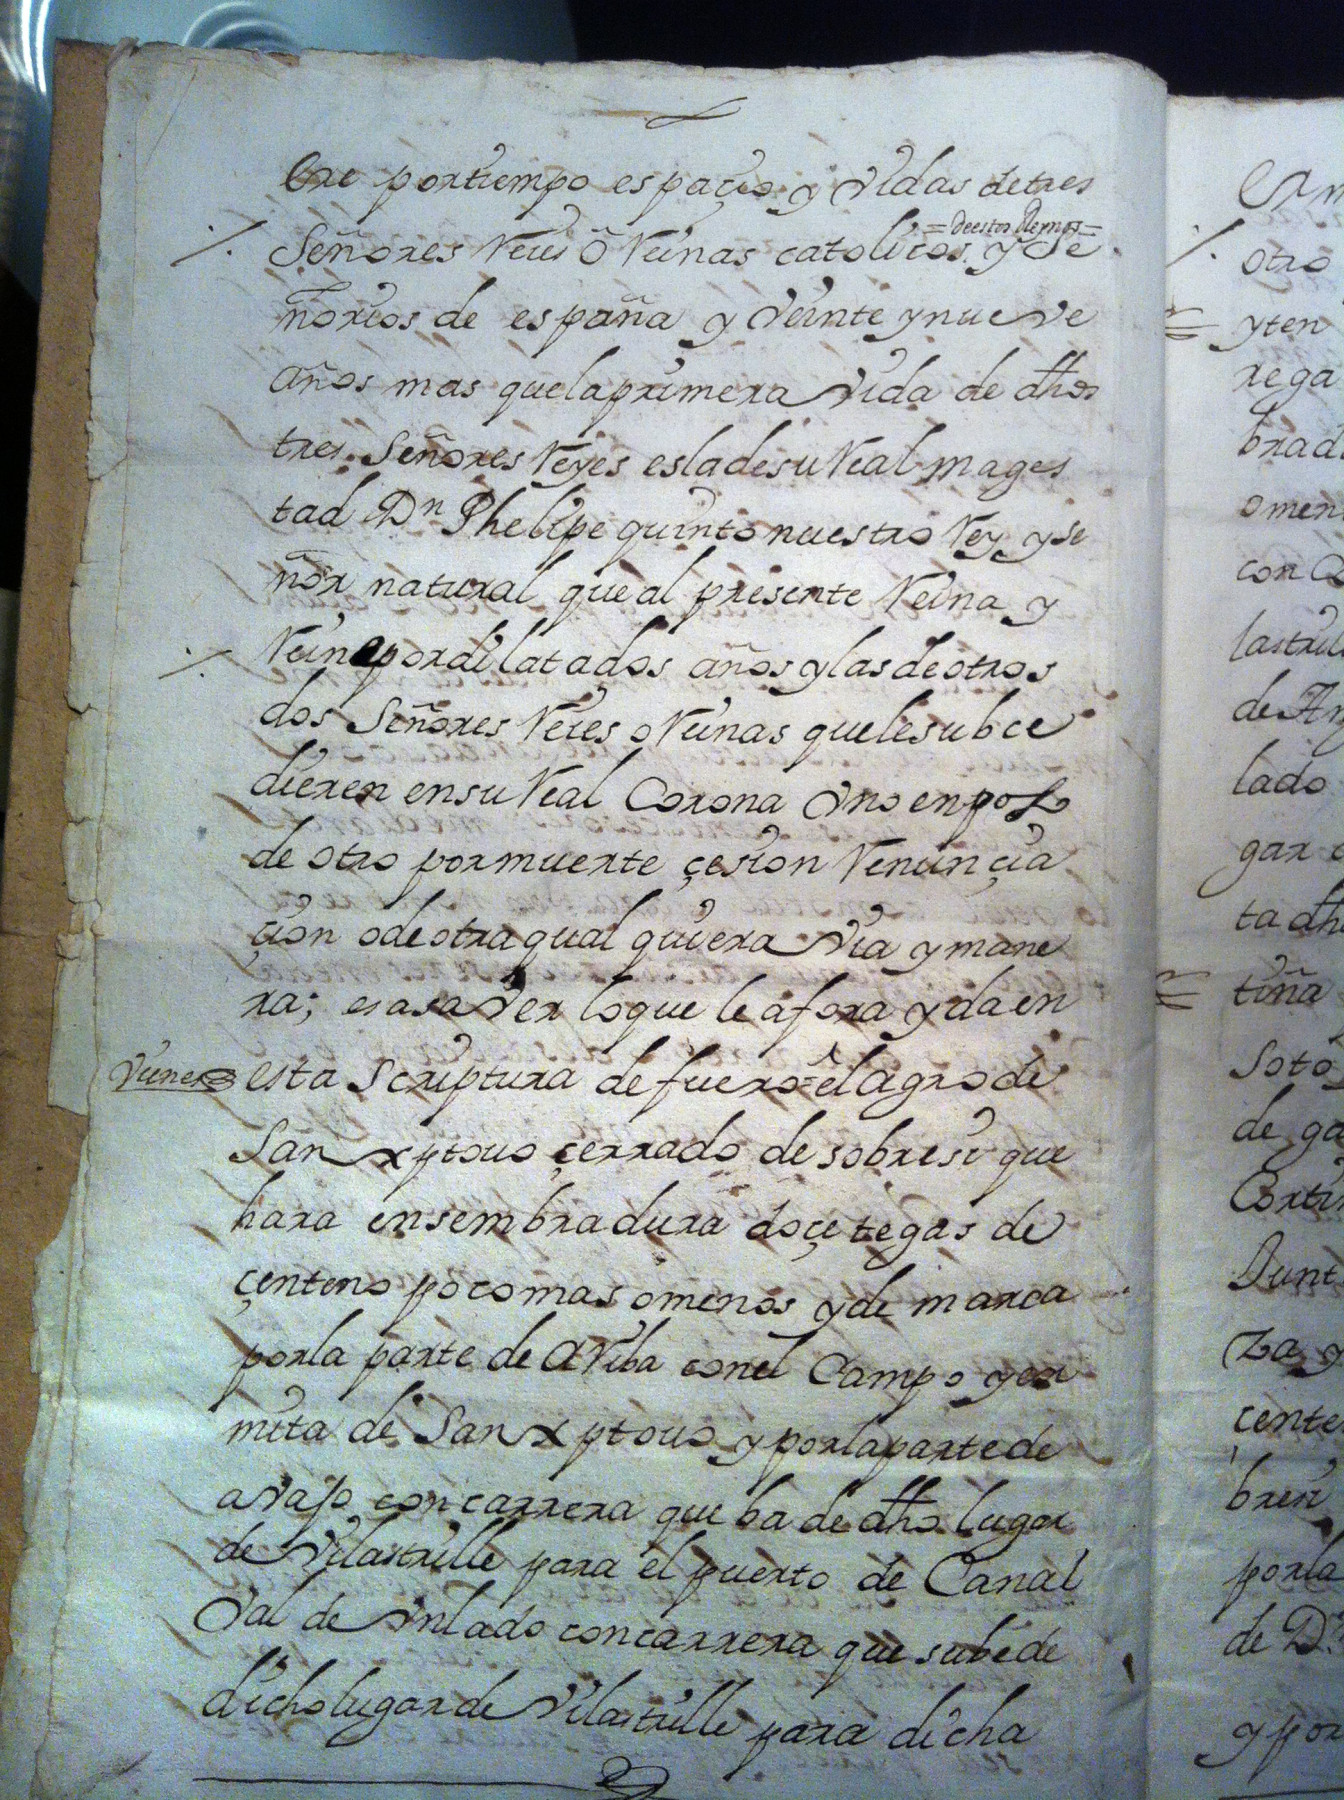 bre por tiempo espaçio y vidas de tres
= de estos Reynos =
Señores Reies õ Reinas catolicos y Se
ñorios de españa y veinte y nueve
años mas que la primera vida de dhos
tres Señores Reyes es la de su Real Mages
tad Dn Phelipe quinto nuestro Rey y se
ñor natural que al presente Reina y
Reine por dilatados años y las de otros
dos Señores Reies o Reinas que le subce
dieren en su Real Corona Uno en pos
de otro por muerte çesion Renunçia
çion o de otra qual quiera via y mane
ra; es a saver lo que le afora y da en
Vienes
esta Scriptura de fuero = el agro de
San xptovo çerrado de sobre si que
hara en sembradura doçe tegas de
çenteno poco mas o menos y de marca
por la parte de arriba con el Campo y er
mita de San xptovo y por la parte de
avajo con carrera que ba de dho lugar
de Vilastrille para el puerto de Canal
Val de un lado con carrera que sube de
dicho lugar de Vilastrille para dicha
otro
yten
rega
brad
omen
con
lastri
de An
lado
gar
ta dh
tiña
Soto
de ga
Corti
Junt
za y
cente
bre si
por la
de D.
y por